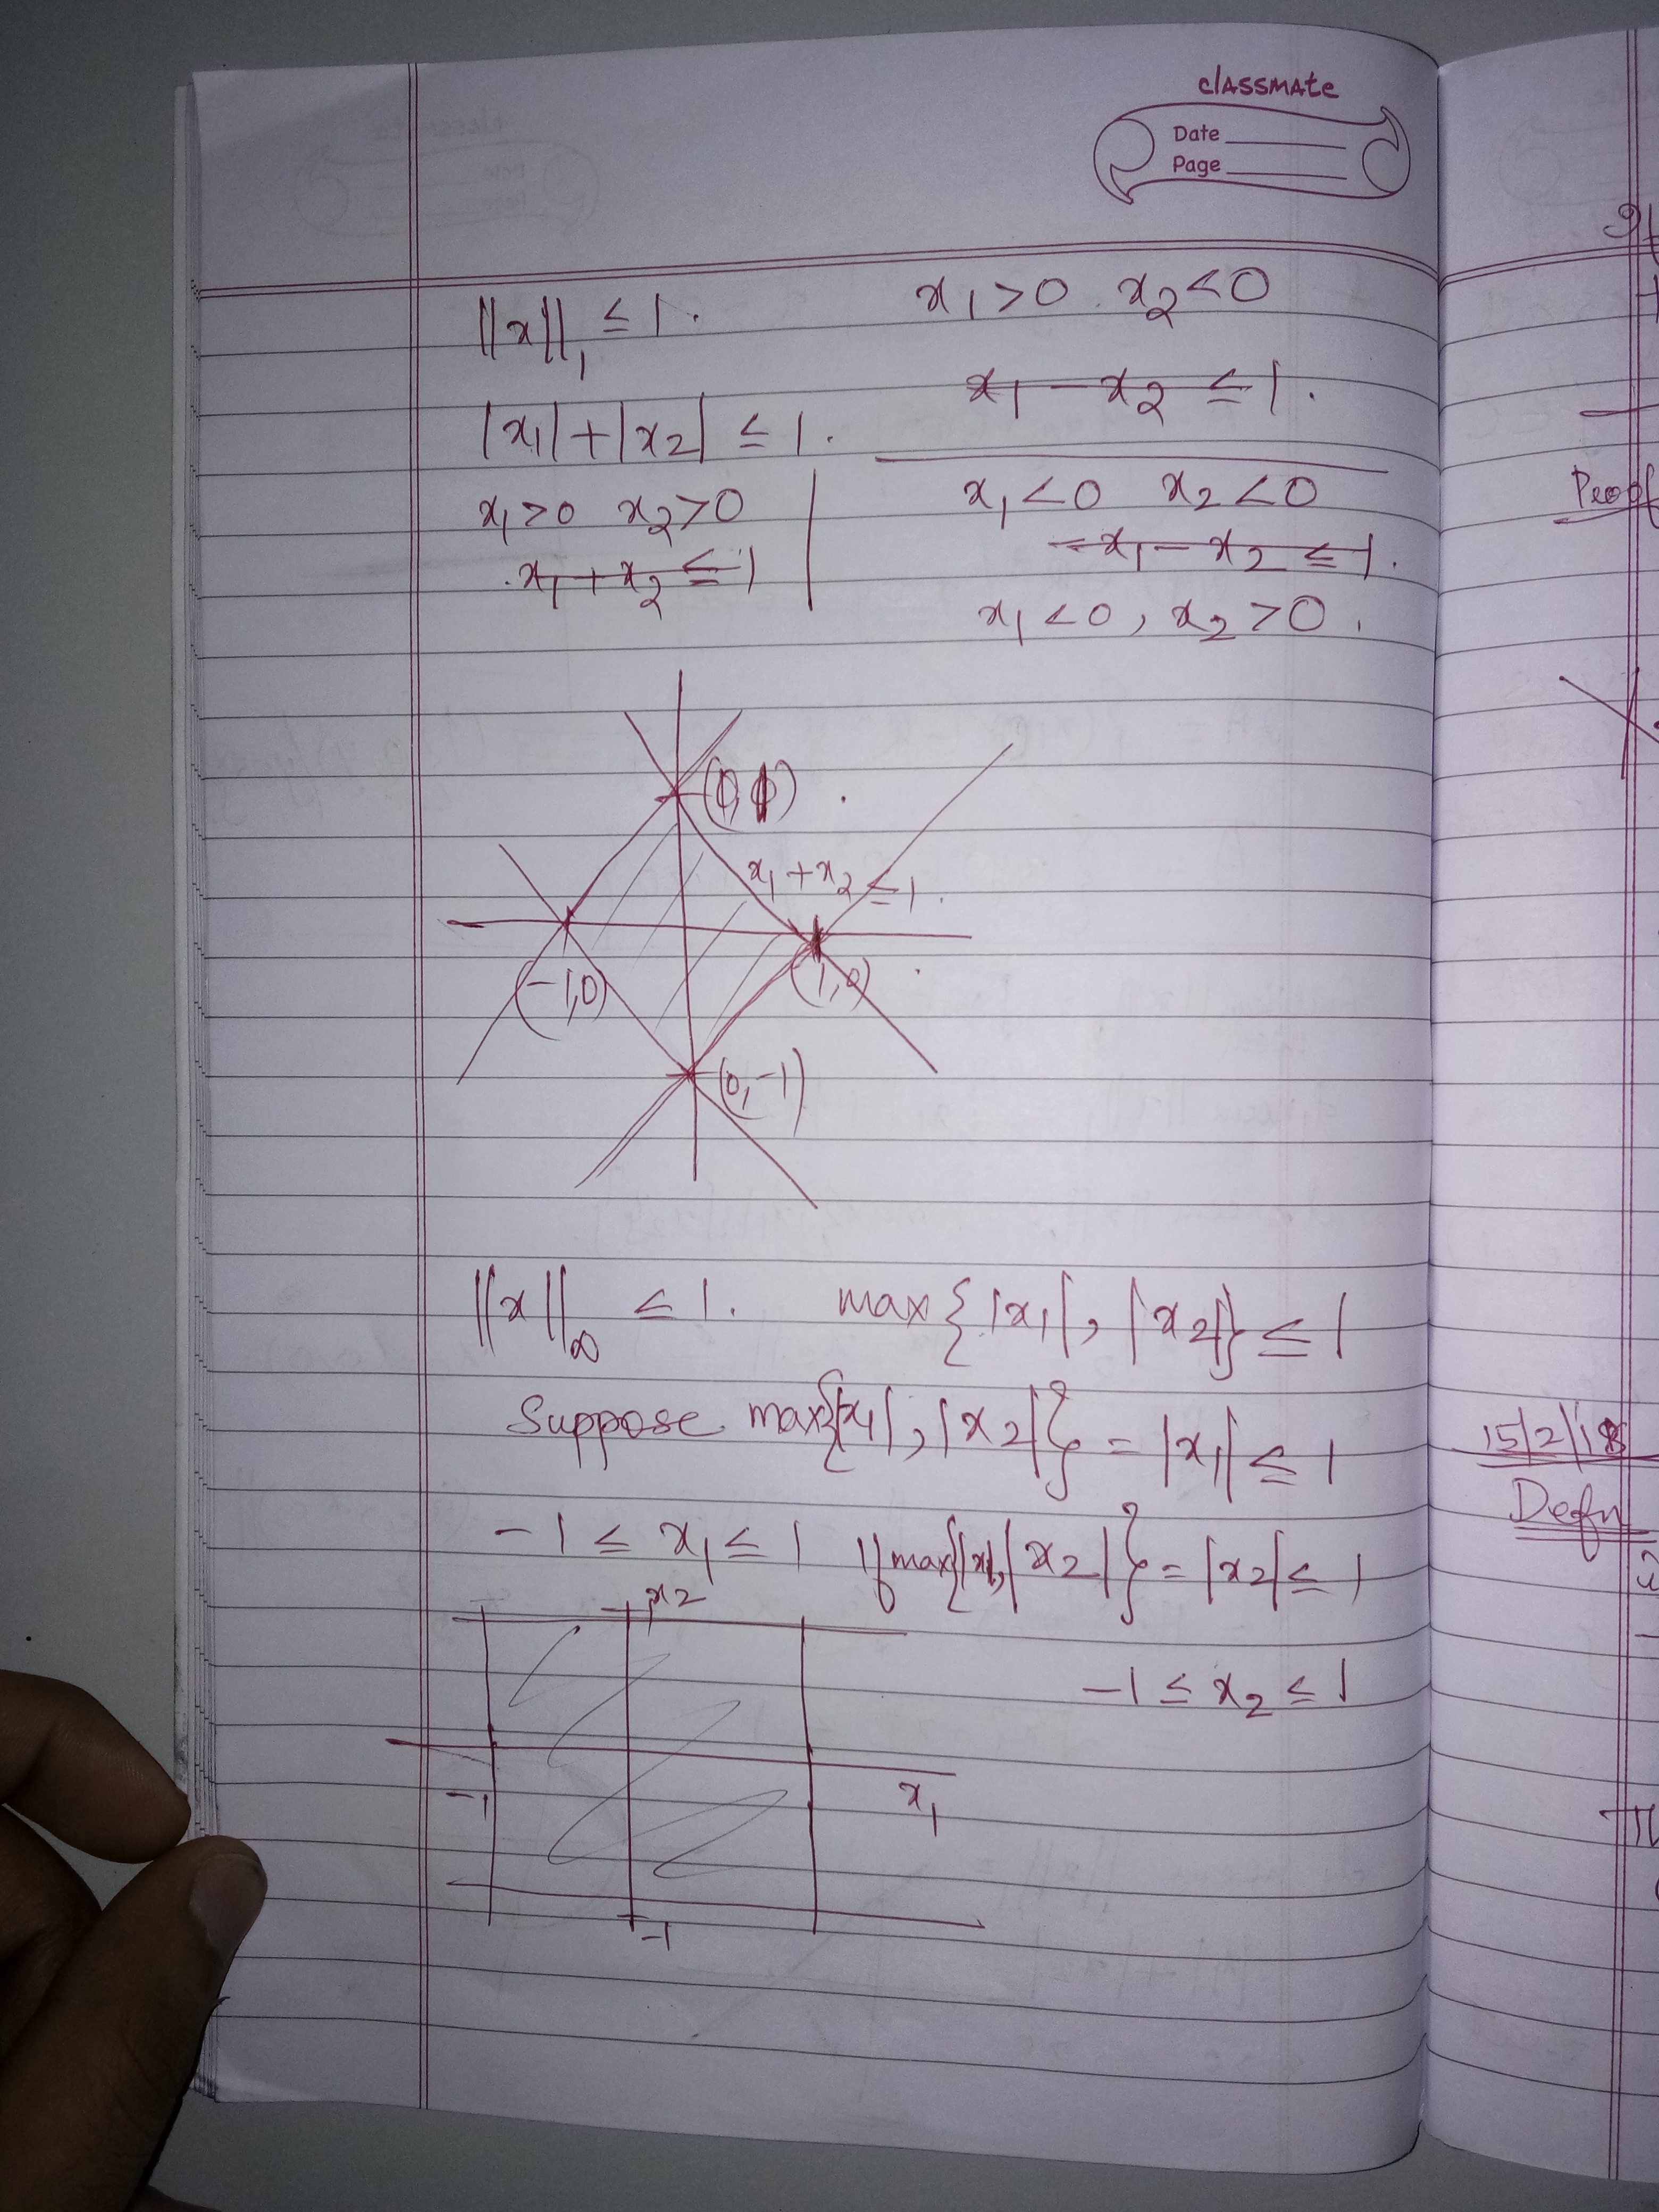 classmate
Date
Page
||x||₁ ≤ 1.
|x₁| + |x₂| ≤ 1.
x₁ > 0 x₂ > 0
x₁ + x₂ ≤ 1
x₁ > 0 . x₂ < 0
x₁ - x₂ ≤ 1.
x₁ < 0 x₂ < 0
- x₁ - x₂ ≤ 1.
x₁ < 0 , x₂ > 0 .
x₁ + x₂ ≤ 1.
(-1,0)
(1,0)
(0,-1)
||x||∞ ≤ 1. max{|x₁|, |x₂|} ≤ 1
Suppose max{|x₁|, |x₂|} = |x₁| ≤ 1
-1 ≤ x₁ ≤ 1 If max{|x₁|, |x₂|} = |x₂| ≤ 1
x₂
-1 ≤ x₂ ≤ 1
-1
x₁
-1
Proof
15/2/18
Defn